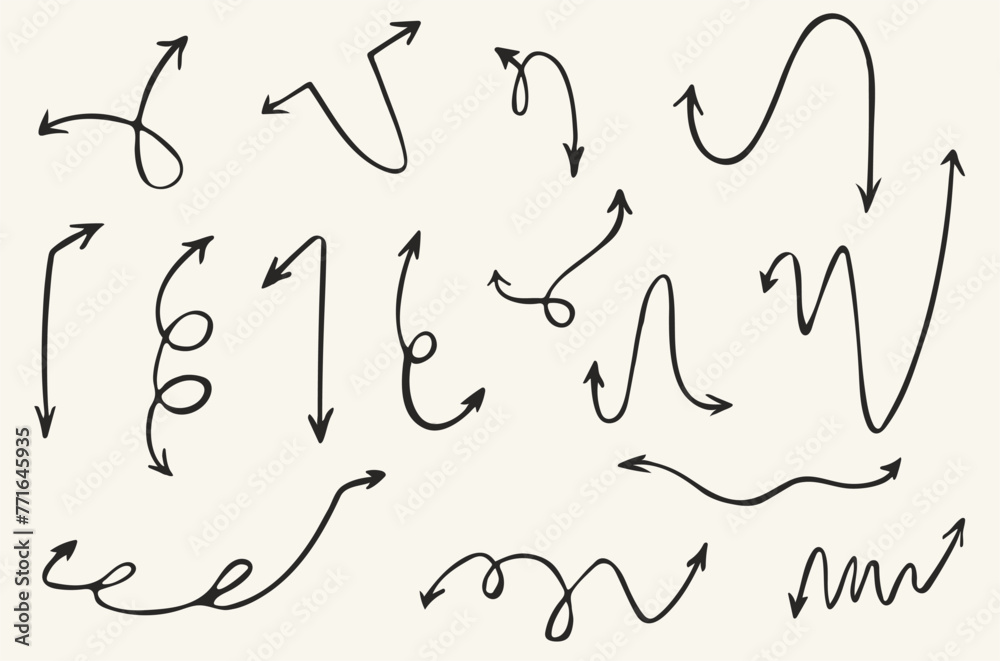 Adobe Stock | #771645935